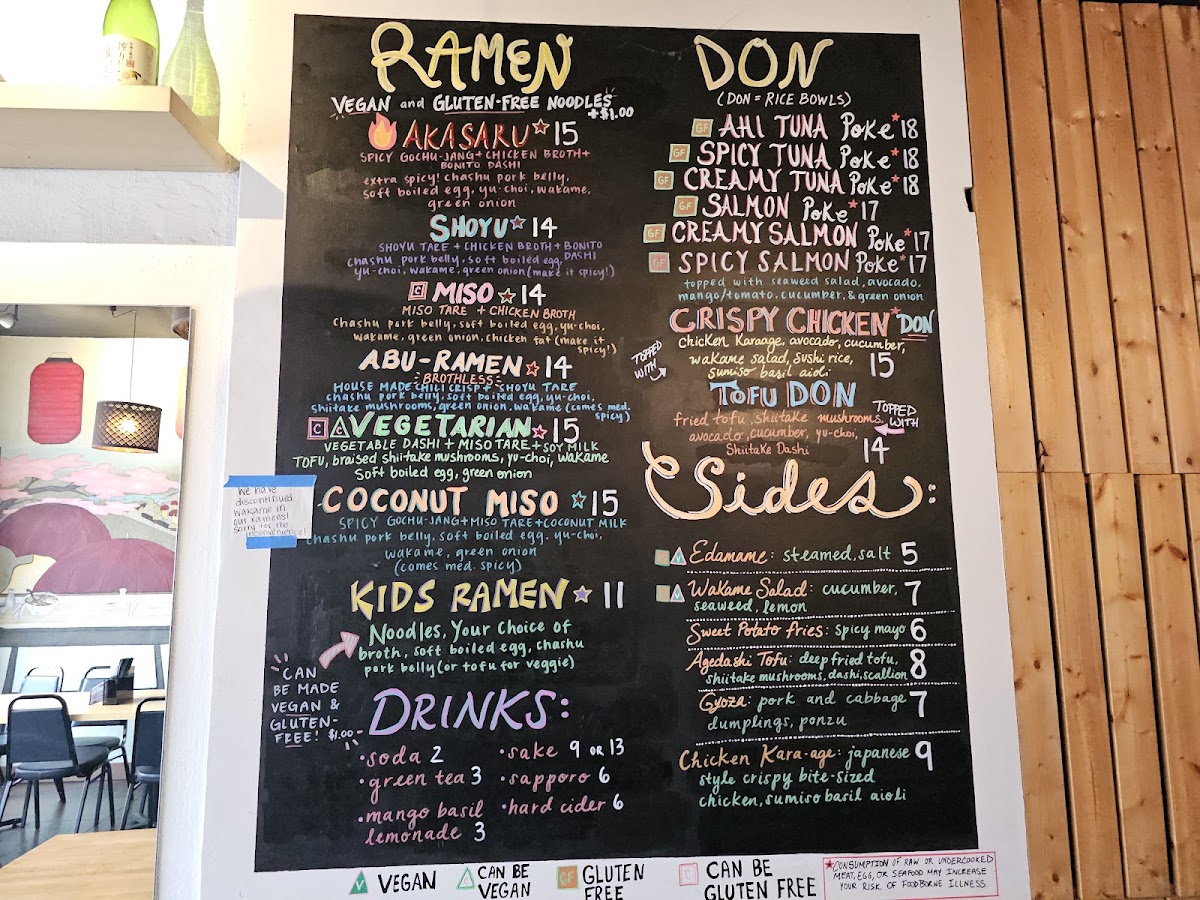 RAMEN
VEGAN and GLUTEN-FREE NOODLES
+$1.00
AKASARU 15
SPICY GOCHU-JANG + CHICKEN BROTH +
BONITO DASHI
extra spicy! chashu pork belly,
soft boiled egg, yu-choi, wakame,
green onion
SHOYU 14
SHOYU TARE + CHICKEN BROTH + BONITO
DASHI
chashu pork belly, soft boiled egg,
yu-choi, wakame, green onion (make it spicy!)
C MISO 14
MISO TARE + CHICKEN BROTH
chashu pork belly, soft boiled egg, yu-choi,
wakame, green onion, chicken fat (make it
spicy!)
ABU-RAMEN 14
BROTHLESS
HOUSE MADE CHILI CRISP + SHOYU TARE
chashu pork belly, soft boiled egg, yu-choi,
shiitake mushrooms, green onion, wakame (comes med.
spicy)
C VEGETARIAN 15
VEGETABLE DASHI + MISO TARE + SOY MILK
TOFU, braised shiitake mushrooms, yu-choi, wakame
Soft boiled egg, green onion
COCONUT MISO 15
SPICY GOCHU-JANG + MISO TARE + COCONUT MILK
chashu pork belly, soft boiled egg, yu-choi,
wakame, green onion
(comes med. spicy)
KIDS RAMEN 11
Noodles, Your choice of
broth, soft boiled egg, chashu
pork belly (or tofu for veggie)
CAN
BE MADE
VEGAN &
GLUTEN-
FREE! $1.00
We have
discontinued
wakame in
our ramens!
sorry for the
inconvenience!
DRINKS:
•soda 2
•green tea 3
•mango basil
lemonade 3
•sake 9 OR 13
•sapporo 6
•hard cider 6
DON
(DON = RICE BOWLS)
GF AHI TUNA Poke* 18
GF SPICY TUNA Poke* 18
GF CREAMY TUNA Poke* 18
GF SALMON Poke* 17
GF CREAMY SALMON Poke* 17
GF SPICY SALMON Poke* 17
topped with seaweed salad, avocado,
mango/tomato, cucumber, & green onion
CRISPY CHICKEN* DON
TOPPED
WITH
chicken Karaage, avocado, cucumber,
wakame salad, sushi rice,
sumiso basil aioli
15
TOFU DON
TOPPED
WITH
fried tofu, shiitake mushrooms,
avocado, cucumber, yu-choi,
Shiitake Dashi
14
Sides:
V Edamame: steamed, salt 5
V Wakame Salad: cucumber, 7
seaweed, lemon
Sweet Potato fries: spicy mayo 6
Agedashi Tofu: deep fried tofu, 8
shiitake mushrooms, dashi, scallion
Gyoza: pork and cabbage 7
dumplings, ponzu
Chicken Kara-age: japanese 9
style crispy bite-sized
chicken, sumiso basil aioli
V VEGAN
CAN BE
VEGAN
GF GLUTEN
FREE
C CAN BE
GLUTEN FREE
*CONSUMPTION OF RAW OR UNDERCOOKED
MEAT, EGG, OR SEAFOOD MAY INCREASE
YOUR RISK OF FOODBORNE ILLNESS.